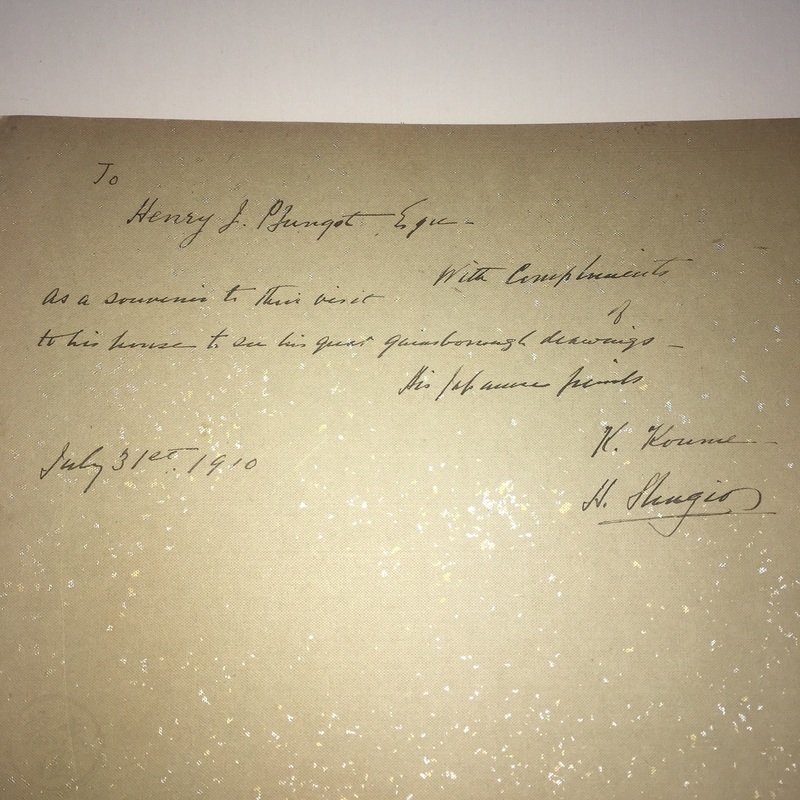 To
Henry J. Pfungst Esqre -
With Compliments
As a souvenir to their visit
of
to his house to see his great gainsborough drawings -
His Japanese friends
K. Koume
July 31st. 1910
H. Shugio